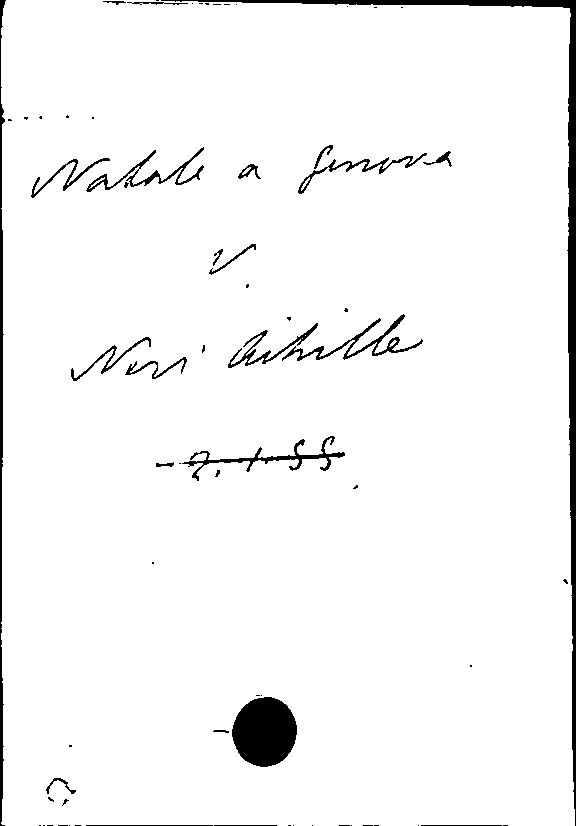 Natale a Genova
V.
Neri Achille
- 2.1.55